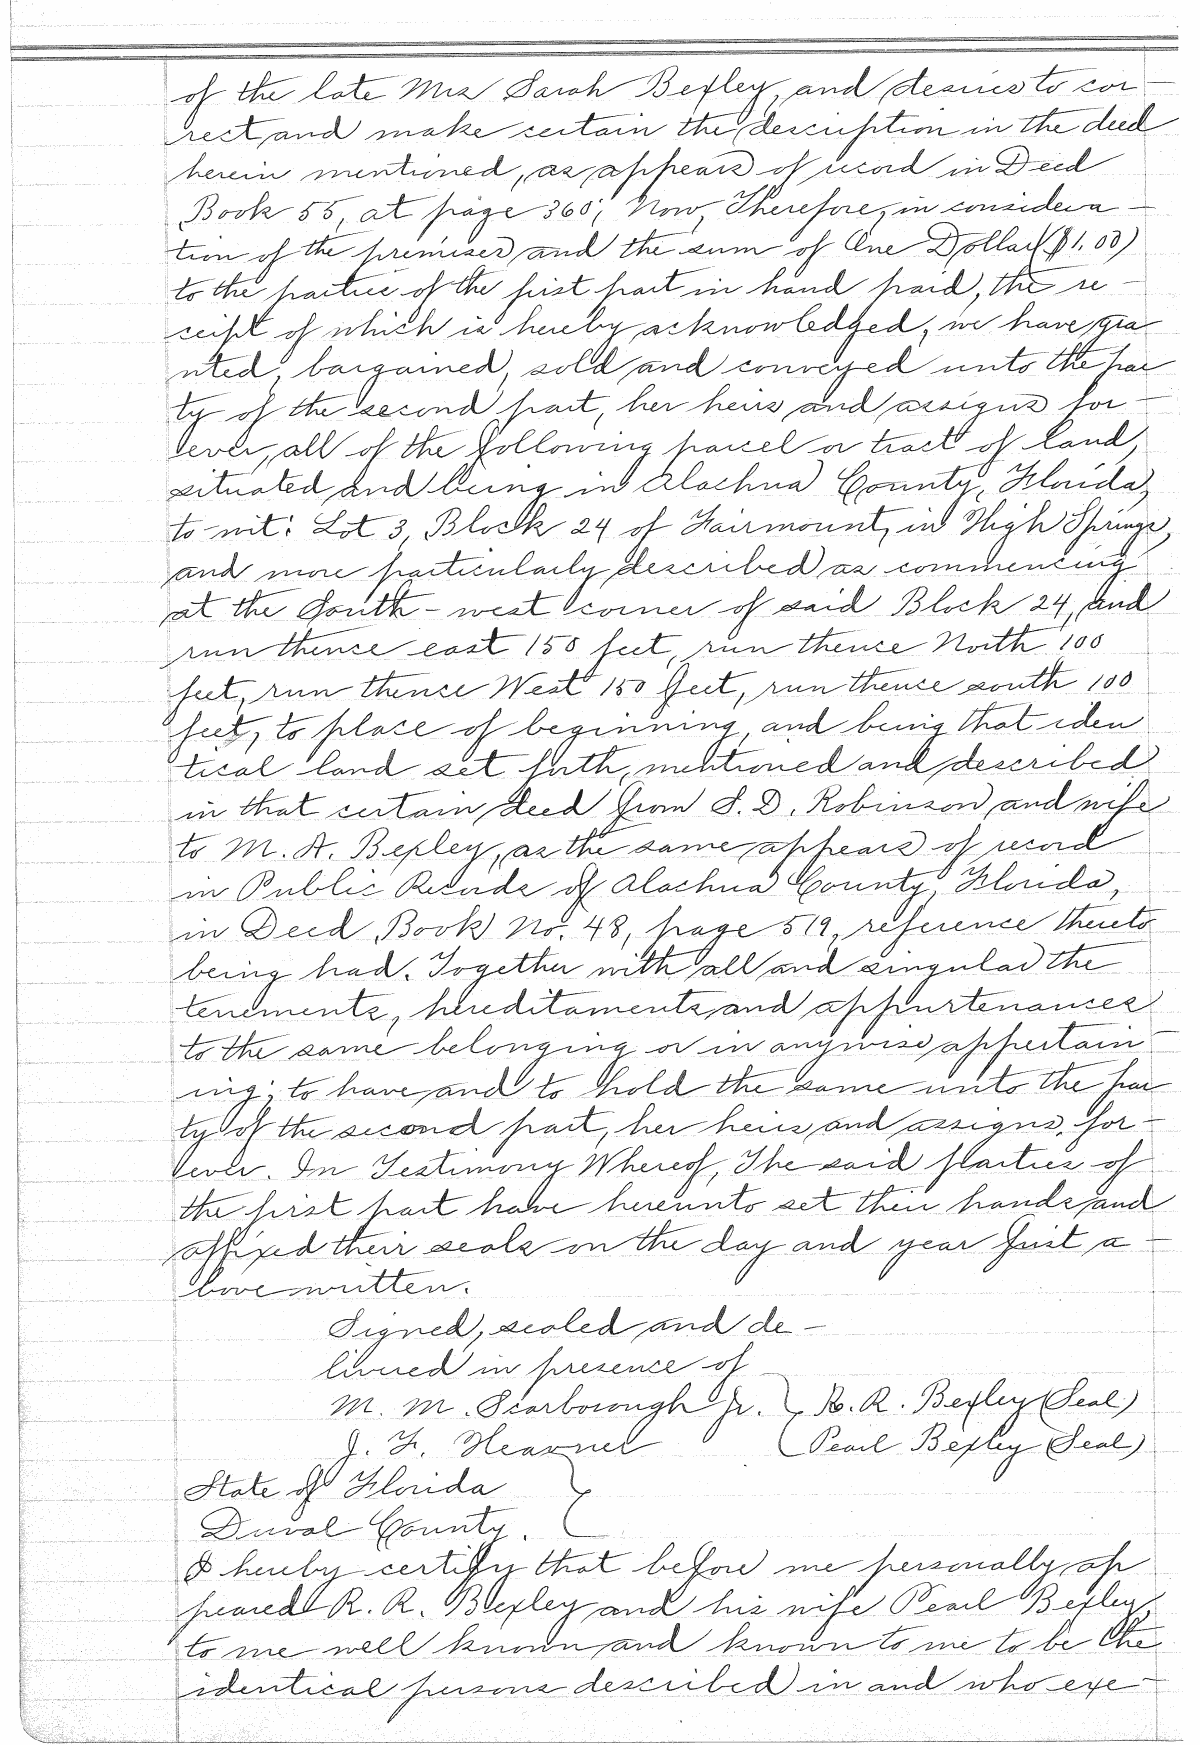 of the late Mrs Sarah Bexley, and desires to cor-
rect and make certain the description in the deed
herein mentioned, as appears of record in Deed
Book 55, at page 360; Now, Therefore, in considera-
tion of the premises and the sum of One Dollar ($1.00)
to the parties of the first part in hand paid, the re-
ceipt of which is hereby acknowledged, we have gra
nted, bargained, sold and conveyed unto the par
ty of the second part, her heirs and assigns for-
ever, all of the following parcel or tract of land,
situated and being in Alachua County, Florida,
to-wit: Lot 3, Block 24 of Fairmount, in High Springs,
and more particularly described as commencing
at the South-west corner of said Block 24, and
run thence east 150 feet, run thence North 100
feet, run thence West 150 feet, run thence south 100
feet, to place of beginning, and being that iden
tical land set forth, mentioned and described
in that certain deed from S. D. Robinson and wife
to M. A. Bexley, as the same appears of record
in Public Records of Alachua County, Florida,
in Deed Book No. 48, page 519, reference thereto
being had. Together with all and singular the
tenements, hereditaments and appurtenances
to the same belonging or in anywise appertain-
ing; to have and to hold the same unto the par
ty of the second part, her heirs and assigns, for-
ever. In Testimony Whereof, The said parties of
the first part have hereunto set their hands and
affixed their seals on the day and year first a-
bove written.
Signed, sealed and de-
livered in presence of
M. M. Scarborough Jr. } R. R. Bexley (Seal)
J. F. Pearl Bexley (Seal)
State of Florida }
Duval County.
I hereby certify that before me personally ap
peared R. R. Bexley and his wife Pearl Bexley,
to me well known and known to me to be the
identical persons described in and who exe-